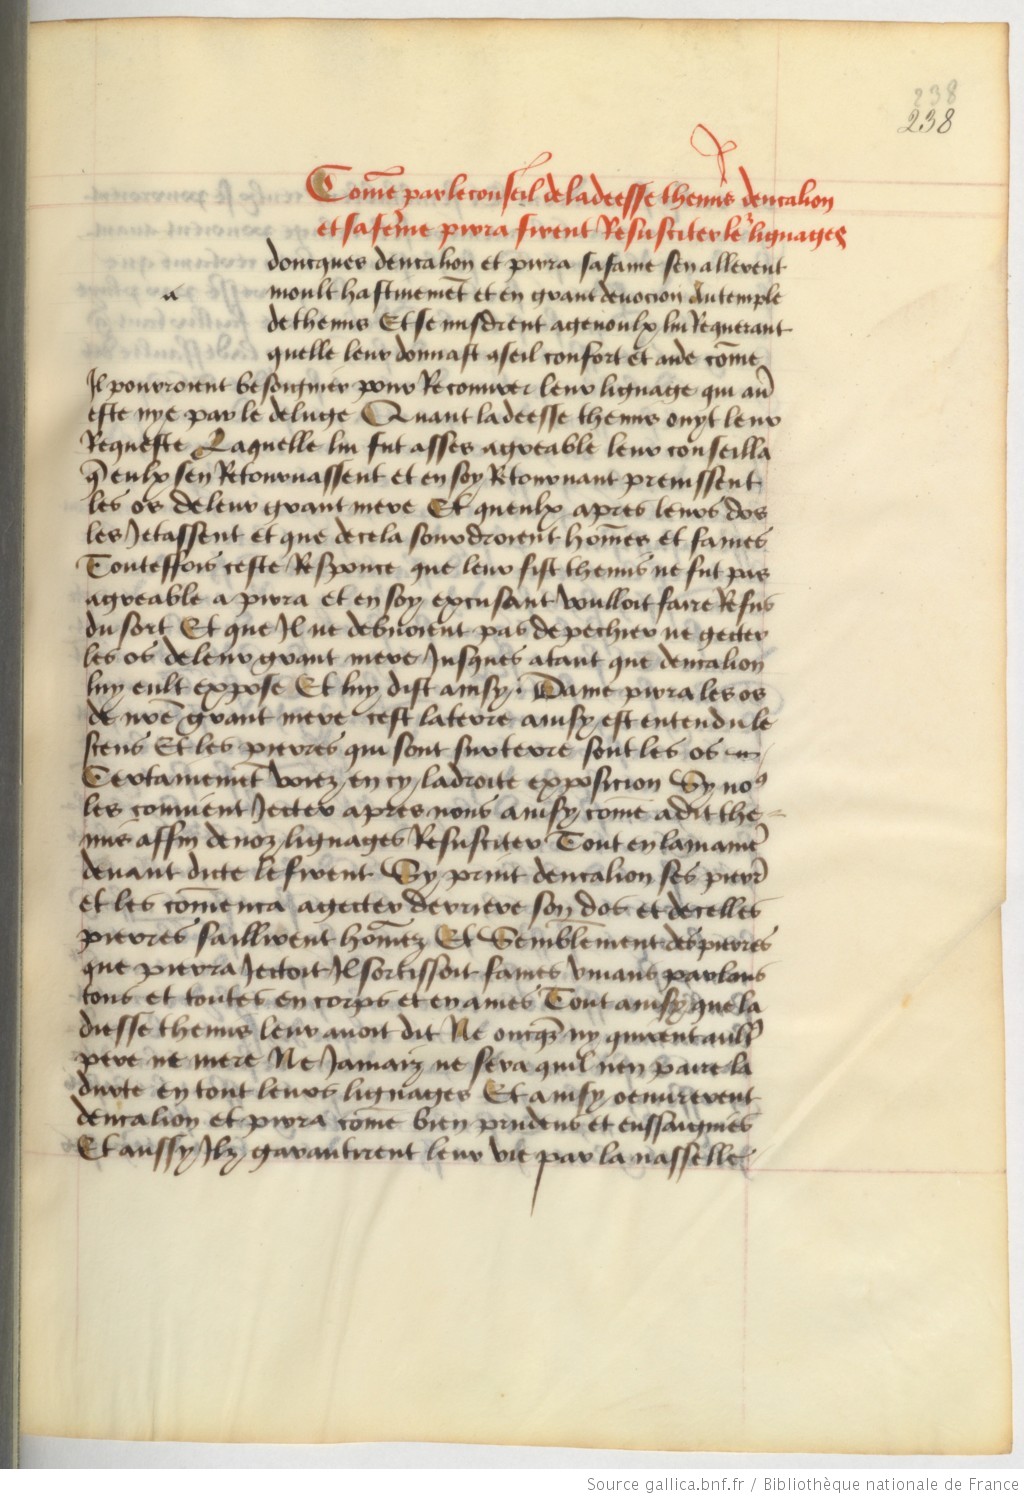 238
238
Com̄e par le conseil de la deesse themis deucalion
et sa fem̄e pirra firent Resusciter le͛ lignages
doncques deucalion et pirra sa fame sen allerent
a moult hastiuemēt et en grant deuocion Au temple
de themis Et se misdrent agenoulx lui Requerant
quelle leur donnast ꝯseil confort et aide com̄e
Il pourroient besoignier pour Recouurer leur lignage qui au͛
este nye par le deluge Quant la deesse themis ouyt leur
Requeste Laquelle lui fut asses agreable leur conseilla
q̄ eulx sen Retournassent et en soy Retournant prenissent
les os de leur grant mere Et queulx apres leurs dos
les Jetassent et que de cela sourdroient hom̄es et fames
Touteffois ceste Responce que leur fist themis ne fut pas
agreable a pirra et en soy excusant voulloit faire Refus
du sort Et que Il ne debuoient pas depechier ne gecter
les os de leur grant mere Jusques atant que deucalion
luy eult expose Et luy dist ainsy. Dame pirra les os
de nr̄e grant mere cest la terre ainsy est entendu le
scens Et les pierres qui sont sur terre sont les os
Certainemēt voiez en cy la droite exposicion Sy noꝰ
les conuient Jecter apres nous ainsy come a dit the-
mis affin de noz lignages Resusciter Tout en la manie͛
deuant dicte le firent Sy print deucalion ses pierr͛
et les com̄enca a gecter derriere son dos et de celles
pierres saillirent hom̄ez Et Semblēment des pierres
que pierra Jectoit Il sortissoit fames viuans parlans
tous et toutes en corps et en ames Tout ainsy que la
diesse themis leur auoit dit Ne oncq̄z ny
pere ne mere Ne Jamaiz ne sera quil nen paire la
durte en tout leurs lignages Et ainsy oeuurerent
deucalion et pirra com̄e bien prudens et enssaignies
Et aussy Ilz garantirent leur vie par la nasselle
Source gallica.bnf.fr / Bibliothèque nationale de France